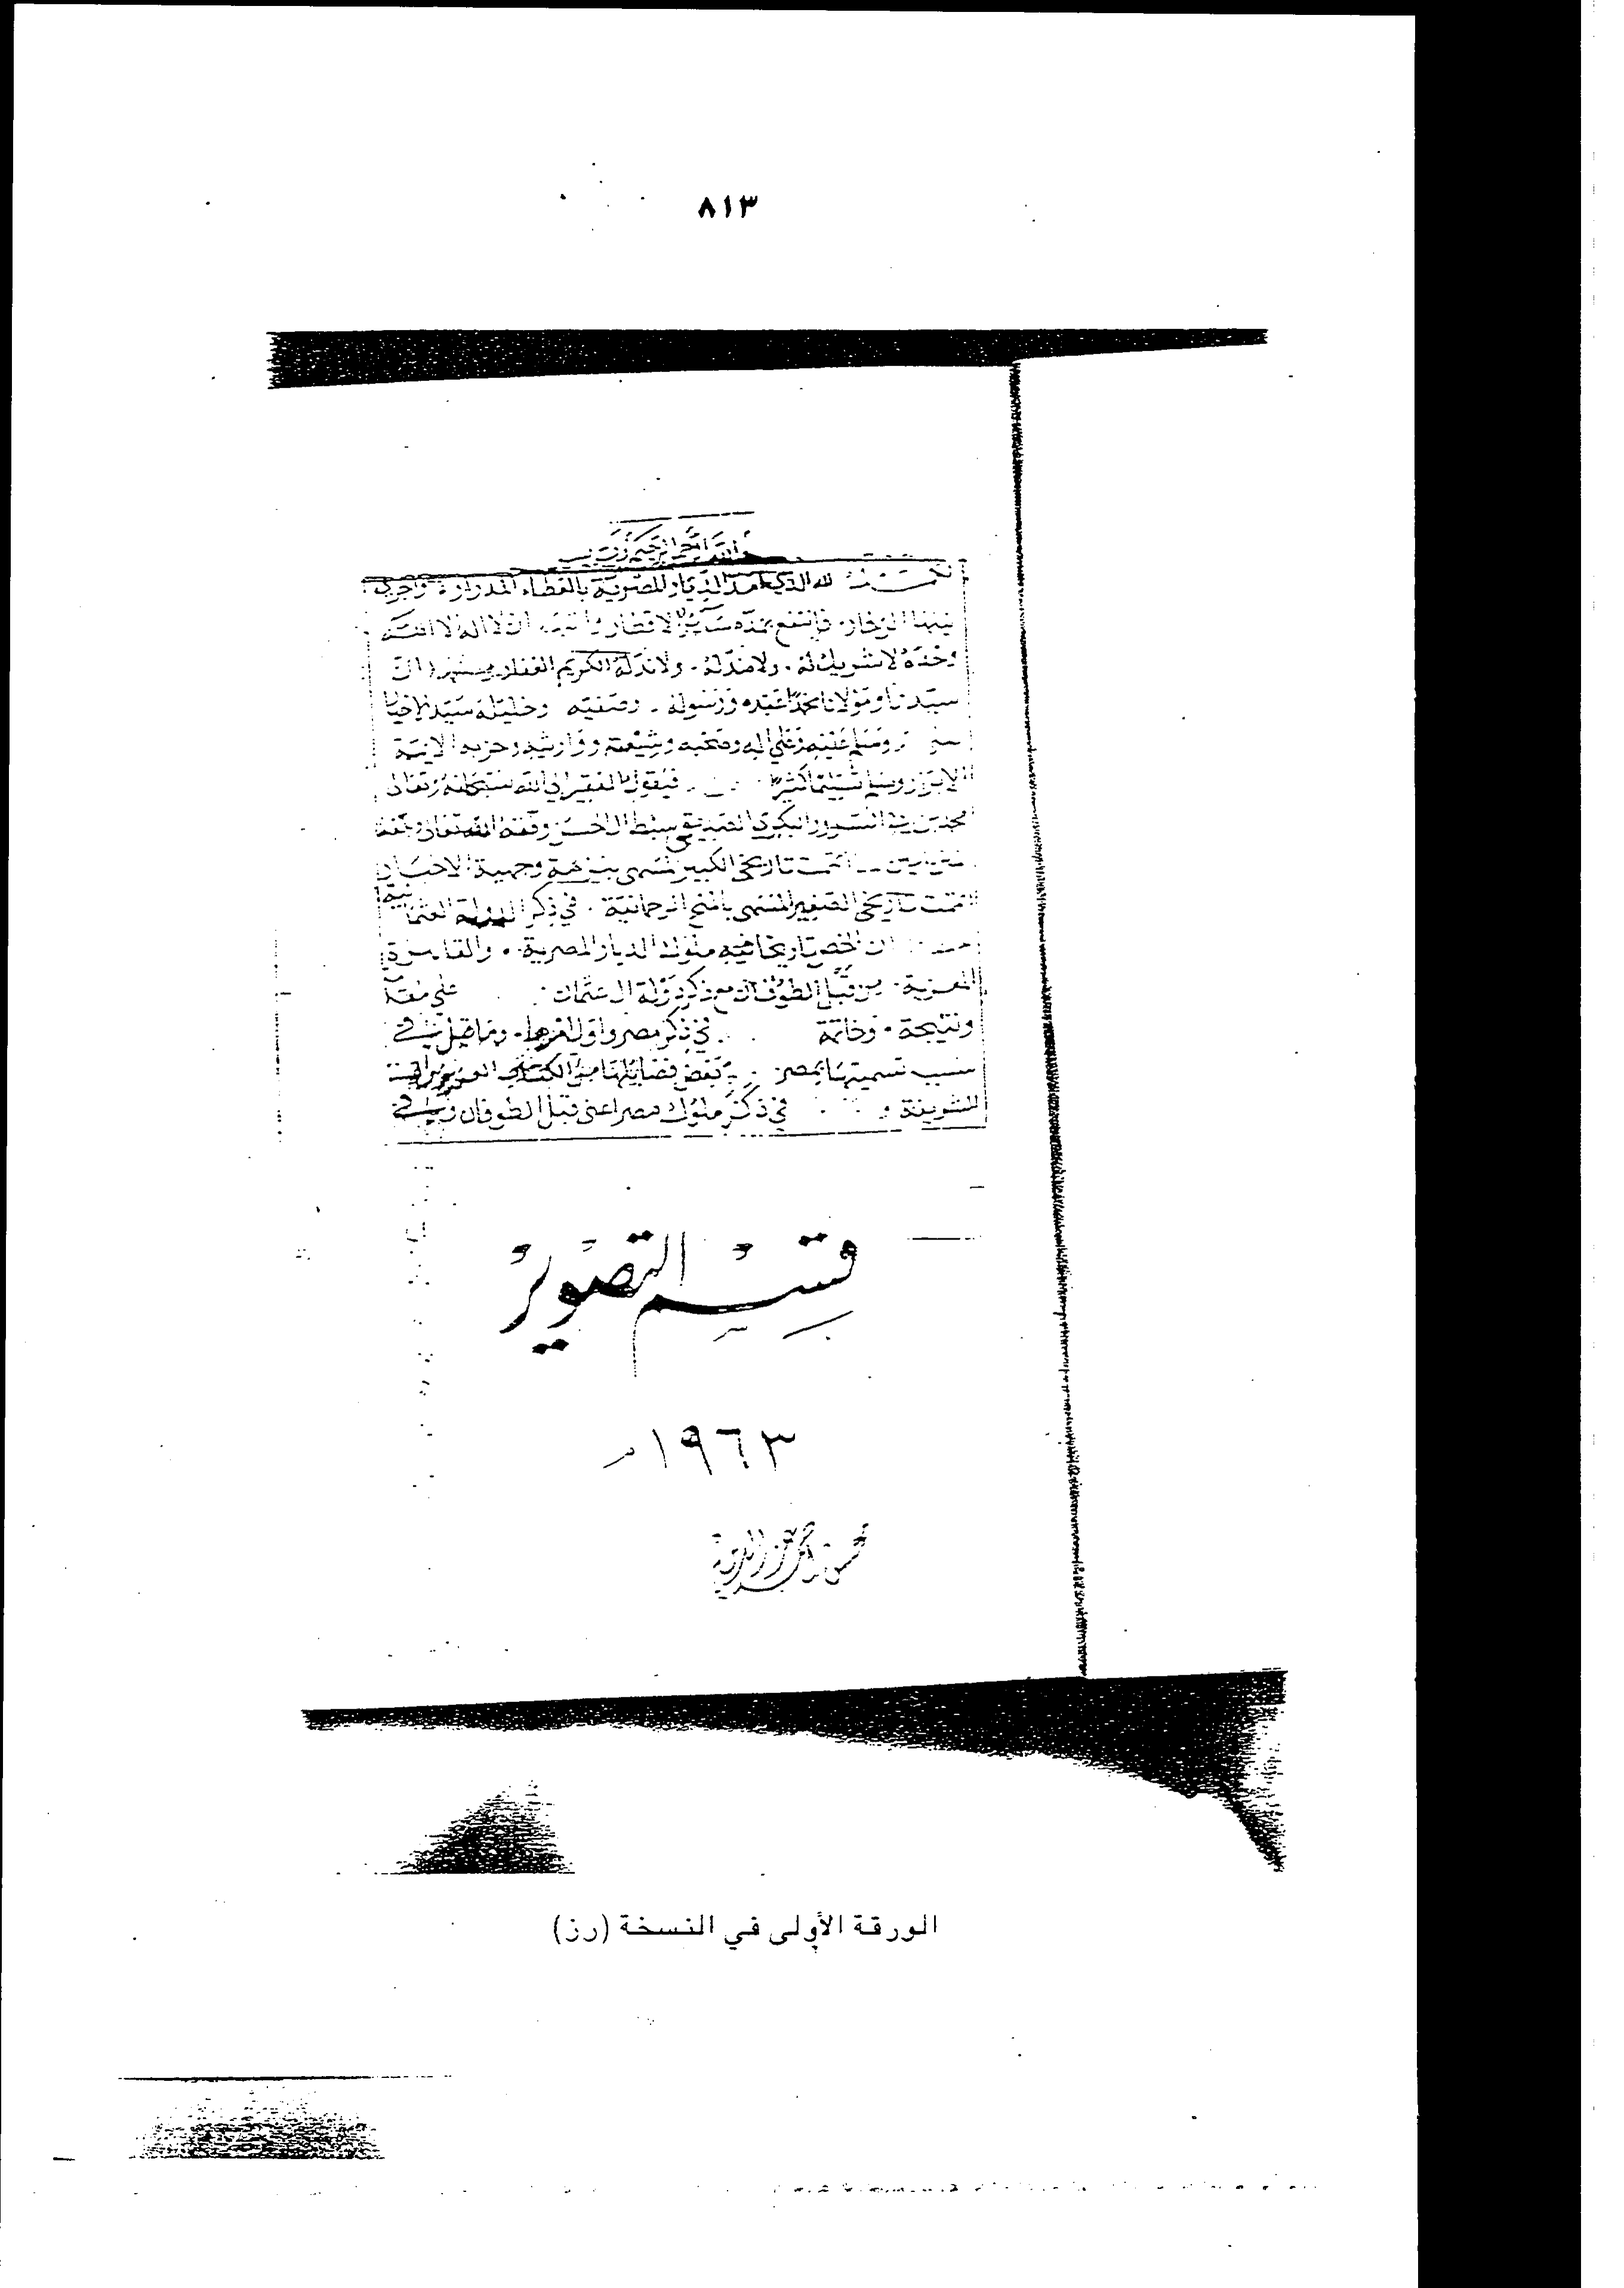 ٨١٣
الله الرحمن الرحيم
لله الذي امد الديار المصرية بالعطاء المدرار واجرى
نيلها الزخار فانتفع بمده سائر الاقطار واشهد ان لا اله الا الله
وحده لا شريك له ولا ضد له ولا ند له الكريم الغفار واشهد ان
سيدنا ومولانا محمدا عبده ورسوله وصفيه وخليله سيد الاخيار
وسلم عليه وعلى اله وصحبه وشيعته ووارثيه وحزبه الائمة
الابرار وسلم تسليما كثيرا فيقول الفقير الى الله سبحانه وتعالى
محمد بن ابي السرور البكري الصديقي سبط ال الحسن وفقه الله تعالى
اتممت تاريخي الكبير المسمى بنزهة وجهينة الاخبار
اتممت تاريخي الصغير المسمى بالمنح الرحمانية في ذكر الدولة العثمانية
ان الخص تاريخا فيه ملوك الديار المصرية والقاهرة
المعزية من قبل الطوفان مع ذكر دولة ال عثمان على مقدمة
ونتيجة وخاتمة في ذكر مصر واول امرها وما قيل في
سبب تسميتها بمصر بعض فضايلها من الكتاب العزيز
الشريفة في ذكر ملوك مصر اعني قبل الطوفان
قسم التصوير
١٩٦٣م
الورقة الأولى في النسخة (رز)